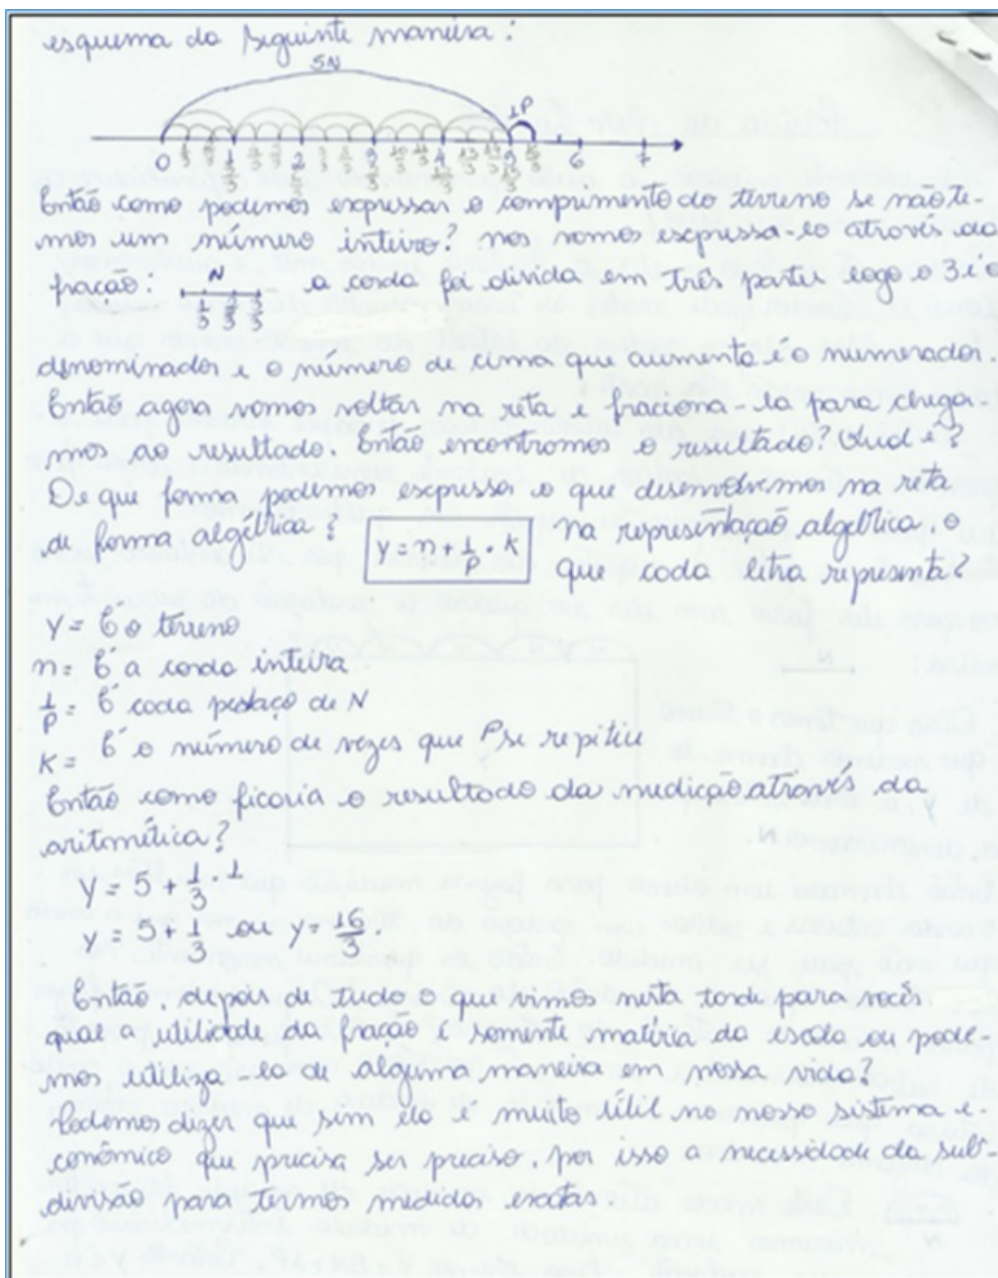 esquema da seguinte maneira:
5N
1P
0 1 2 3 4 5 6 7
Então como podemos expressar o comprimento do terreno se não te-
mos um número inteiro? nos vamos expressa-lo através da
fração: N a corda foi divida em três partes logo o 3 é o
1/3 2/3 3/3
denominador e o número de cima que aumenta é o numerador.
Então agora vamos voltar na reta e fraciona-la para chega
mos ao resultado. Então encontramos o resultado? Qual é?
De que forma podemos expressa o que desenvolvemos na reta
de forma algébrica? y = n + 1/p · k na representação algébrica, o
que cada letra representa?
y = É o terreno
n = É a corda inteira
1/p = É cada pedaço de N
k = É o número de vezes que P se repitiu
Então como ficaria o resultado da medição através da
aritmética?
y = 5 + 1/3 · 1
y = 5 + 1/3 ou y = 16/3
Então, depois de tudo o que vimos nesta tarde para vocês
qual a utilidade da fração é somente matéria da escola ou pode-
mos utiliza-la de alguma maneira em nossa vida?
Podemos dizer que sim ela é muito útil no nosso sistema e-
conômico que precisa ser preciso, por isso a necessidade da sub-
divisão para termos medidas exatas.